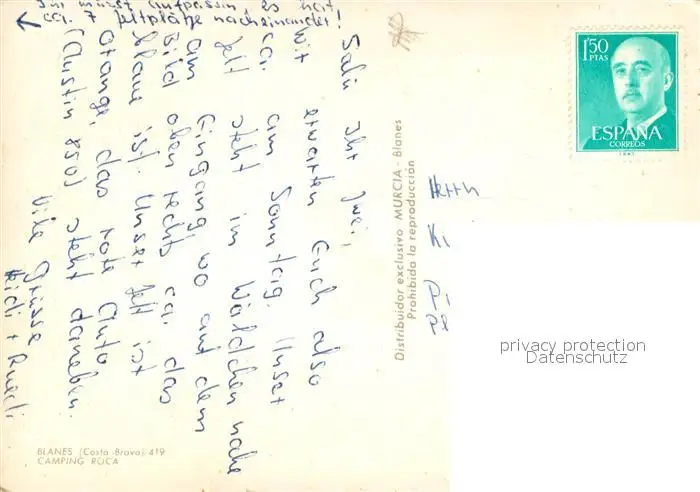 Salü Ihr zwei,
Wir erwarten Euch also
ca. am Sonntag. Unser
Zelt steht im Wäldchen nahe
am Eingang wo auf dem
Bild oben rechts ca. das
blaue ist. Unser Zelt ist
orange, das rote Auto
(Austin 850) steht daneben.
Viele Grüsse
Heidi + Ruedi
Ihr müsst aufpassen, es hat
ca. 7 Zeltplätze nacheinander!
BLANES (Costa Brava)-419
CAMPING ROCA
Distribuidor exclusivo MURCIA - Blanes
Prohibida la reproducción
1'50
PTAS
ESPAÑA
CORREOS
Herrn
Ki
privacy protection
Datenschutz